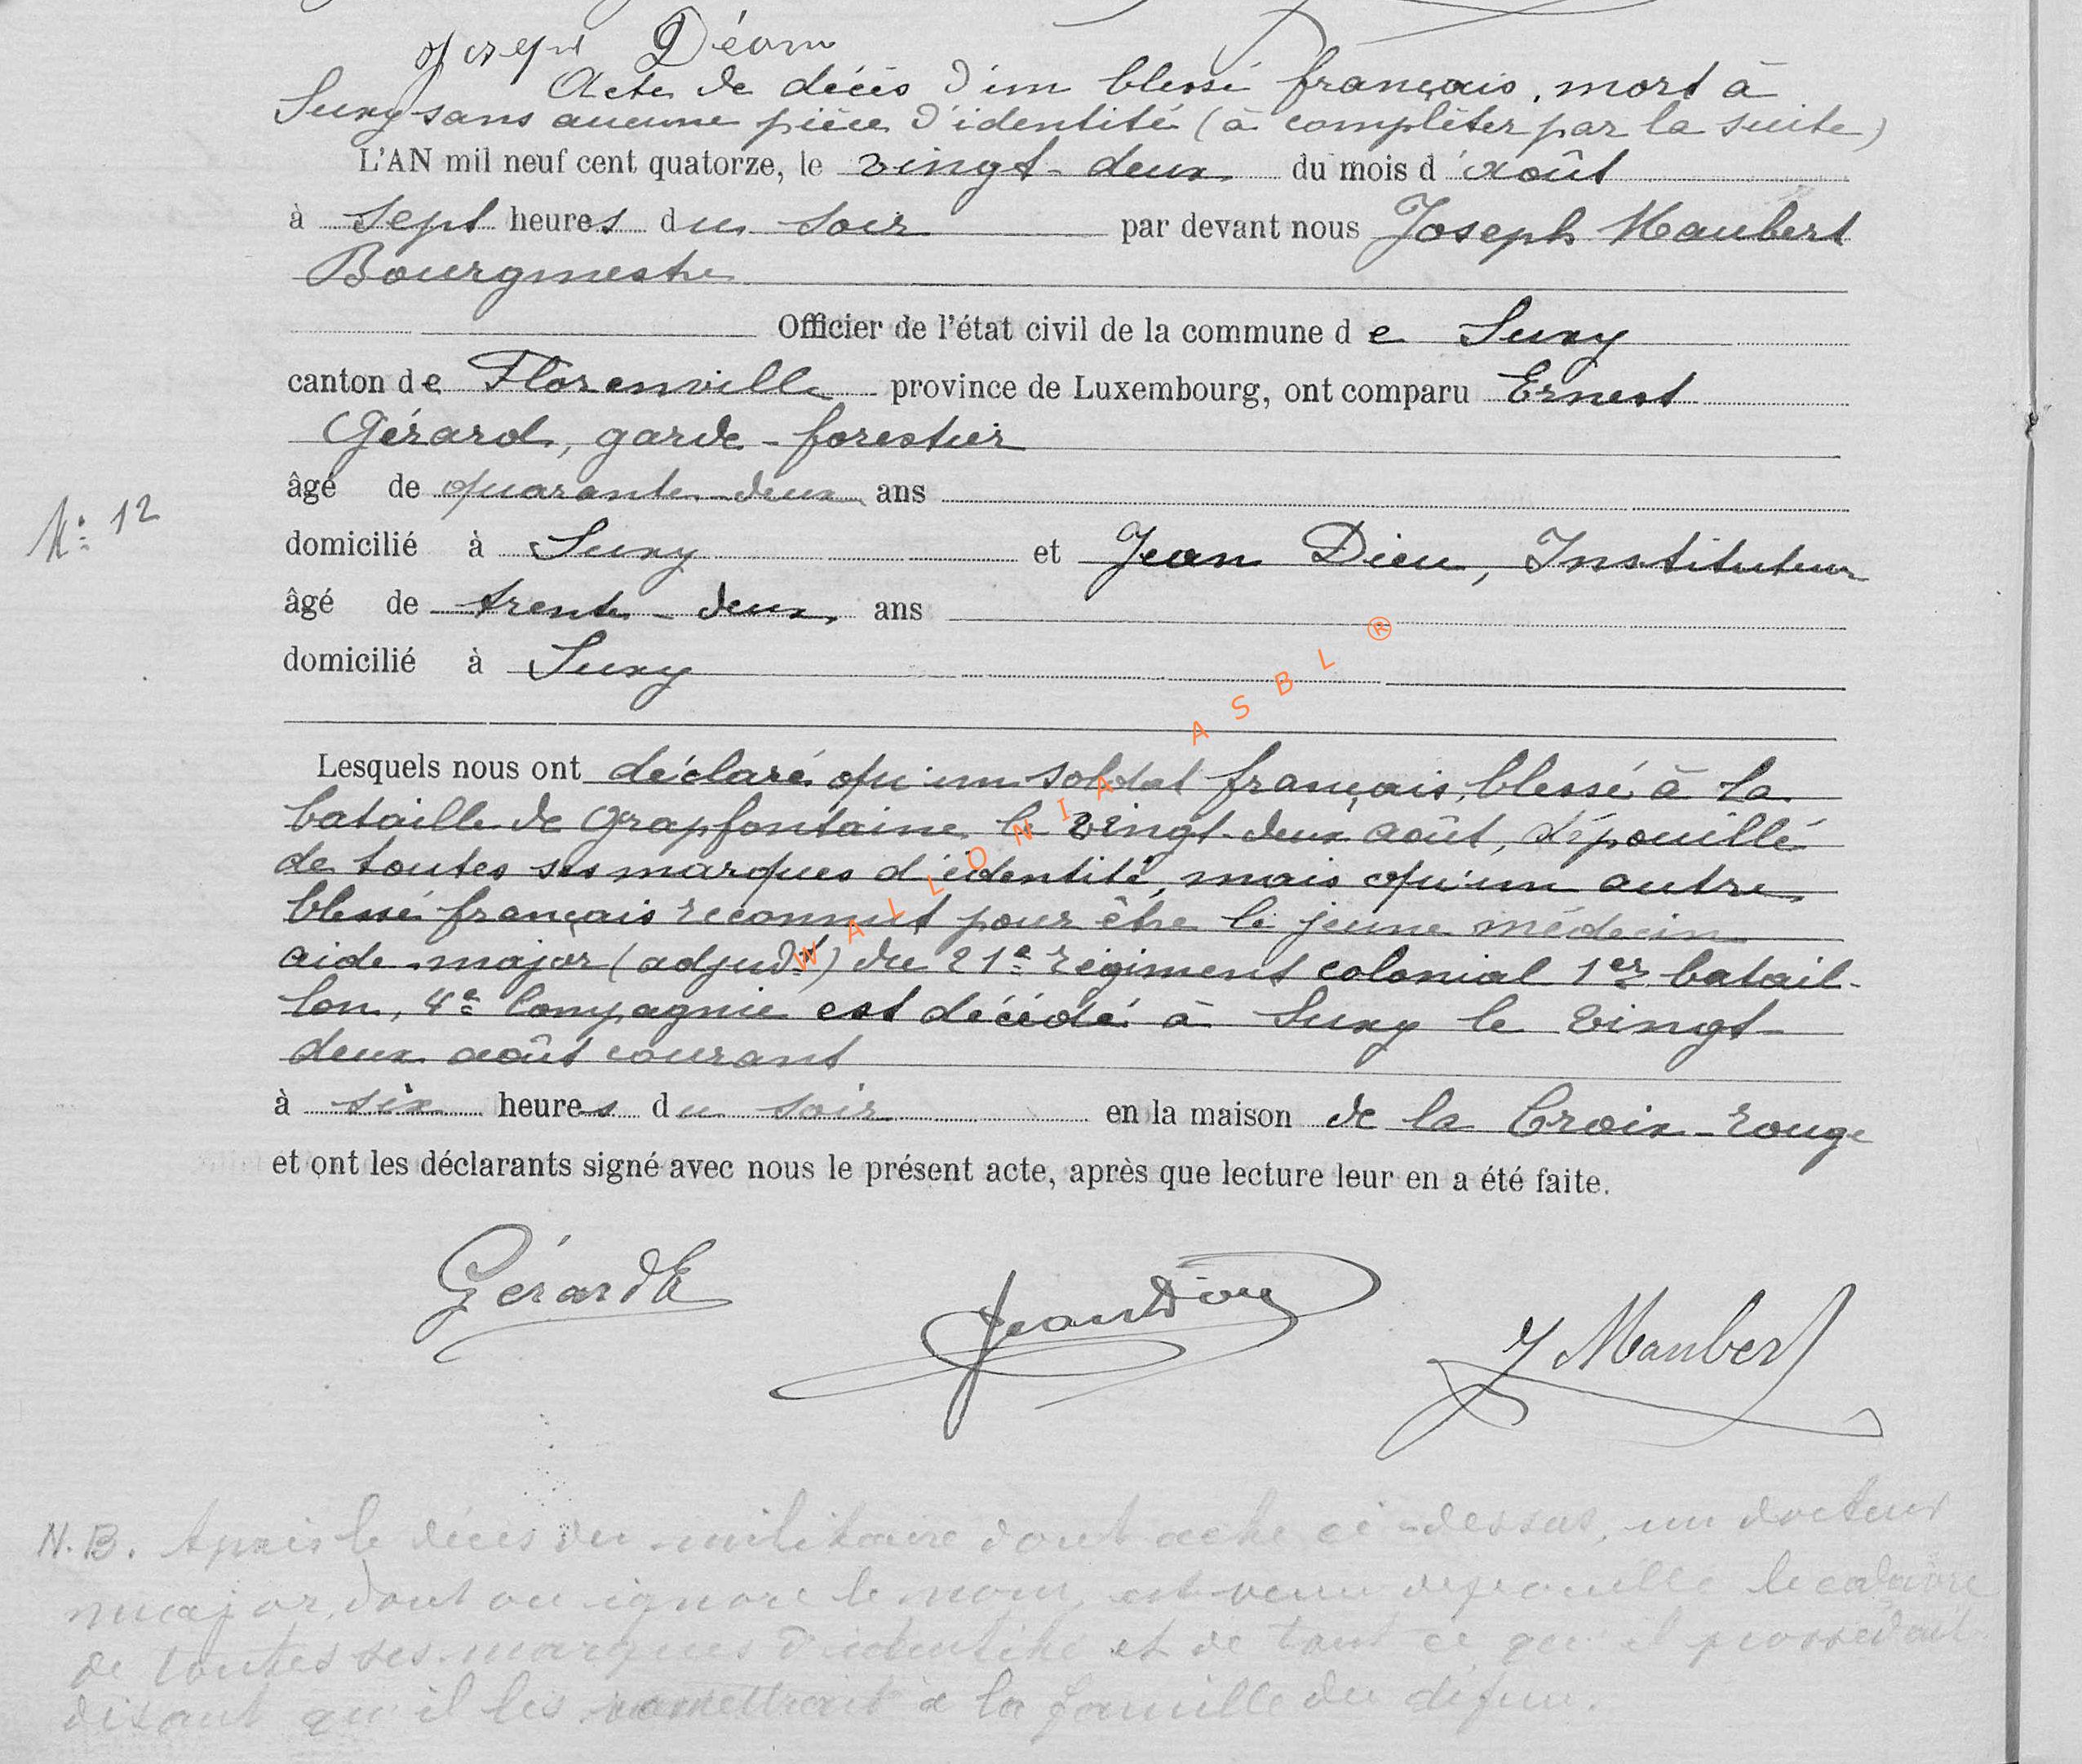 Joseph Déom
Acte de décès d'un blessé français, mort à
Suxy sans aucune pièce d'identité (à compléter par la suite)
L'AN mil neuf cent quatorze, le vingt-deux du mois d'août
à sept heures du soir par devant nous Joseph Maubert
Bourgmestre
Officier de l'état civil de la commune de Suxy
canton de Florenville province de Luxembourg, ont comparu Ernest
Gérard, garde-forestier
âgé de quarante-deux ans
N° 12
domicilié à Suxy et Jean Dieu, Instituteur
âgé de trente-deux ans
domicilié à Suxy
Lesquels nous ont déclaré qu'un soldat français, blessé à la
bataille de Grapfontaine le vingt-deux août, dépouillé
de toutes ses marques d'identité, mais qu'un autre
blessé français reconnut pour être le jeune médecin
aide-major (adjudt) du 21e régiment colonial 1er batail-
lon, 4e Compagnie est décédé à Suxy le vingt-
deux août courant
à six heures du soir en la maison de la Croix-rouge
et ont les déclarants signé avec nous le présent acte, après que lecture leur en a été faite.
Gérard E
Jean Dieu
J Maubert
N.B. Après le décès du militaire dont acte ci-dessus, un docteur
major, dont on ignore le nom, est venu dépouillé le cadavre
de toutes ses marques d'identité et de tout ce qu'il possédait
disant qu'il les remettrait à la famille du défun.
WALLONIA ASBL ®